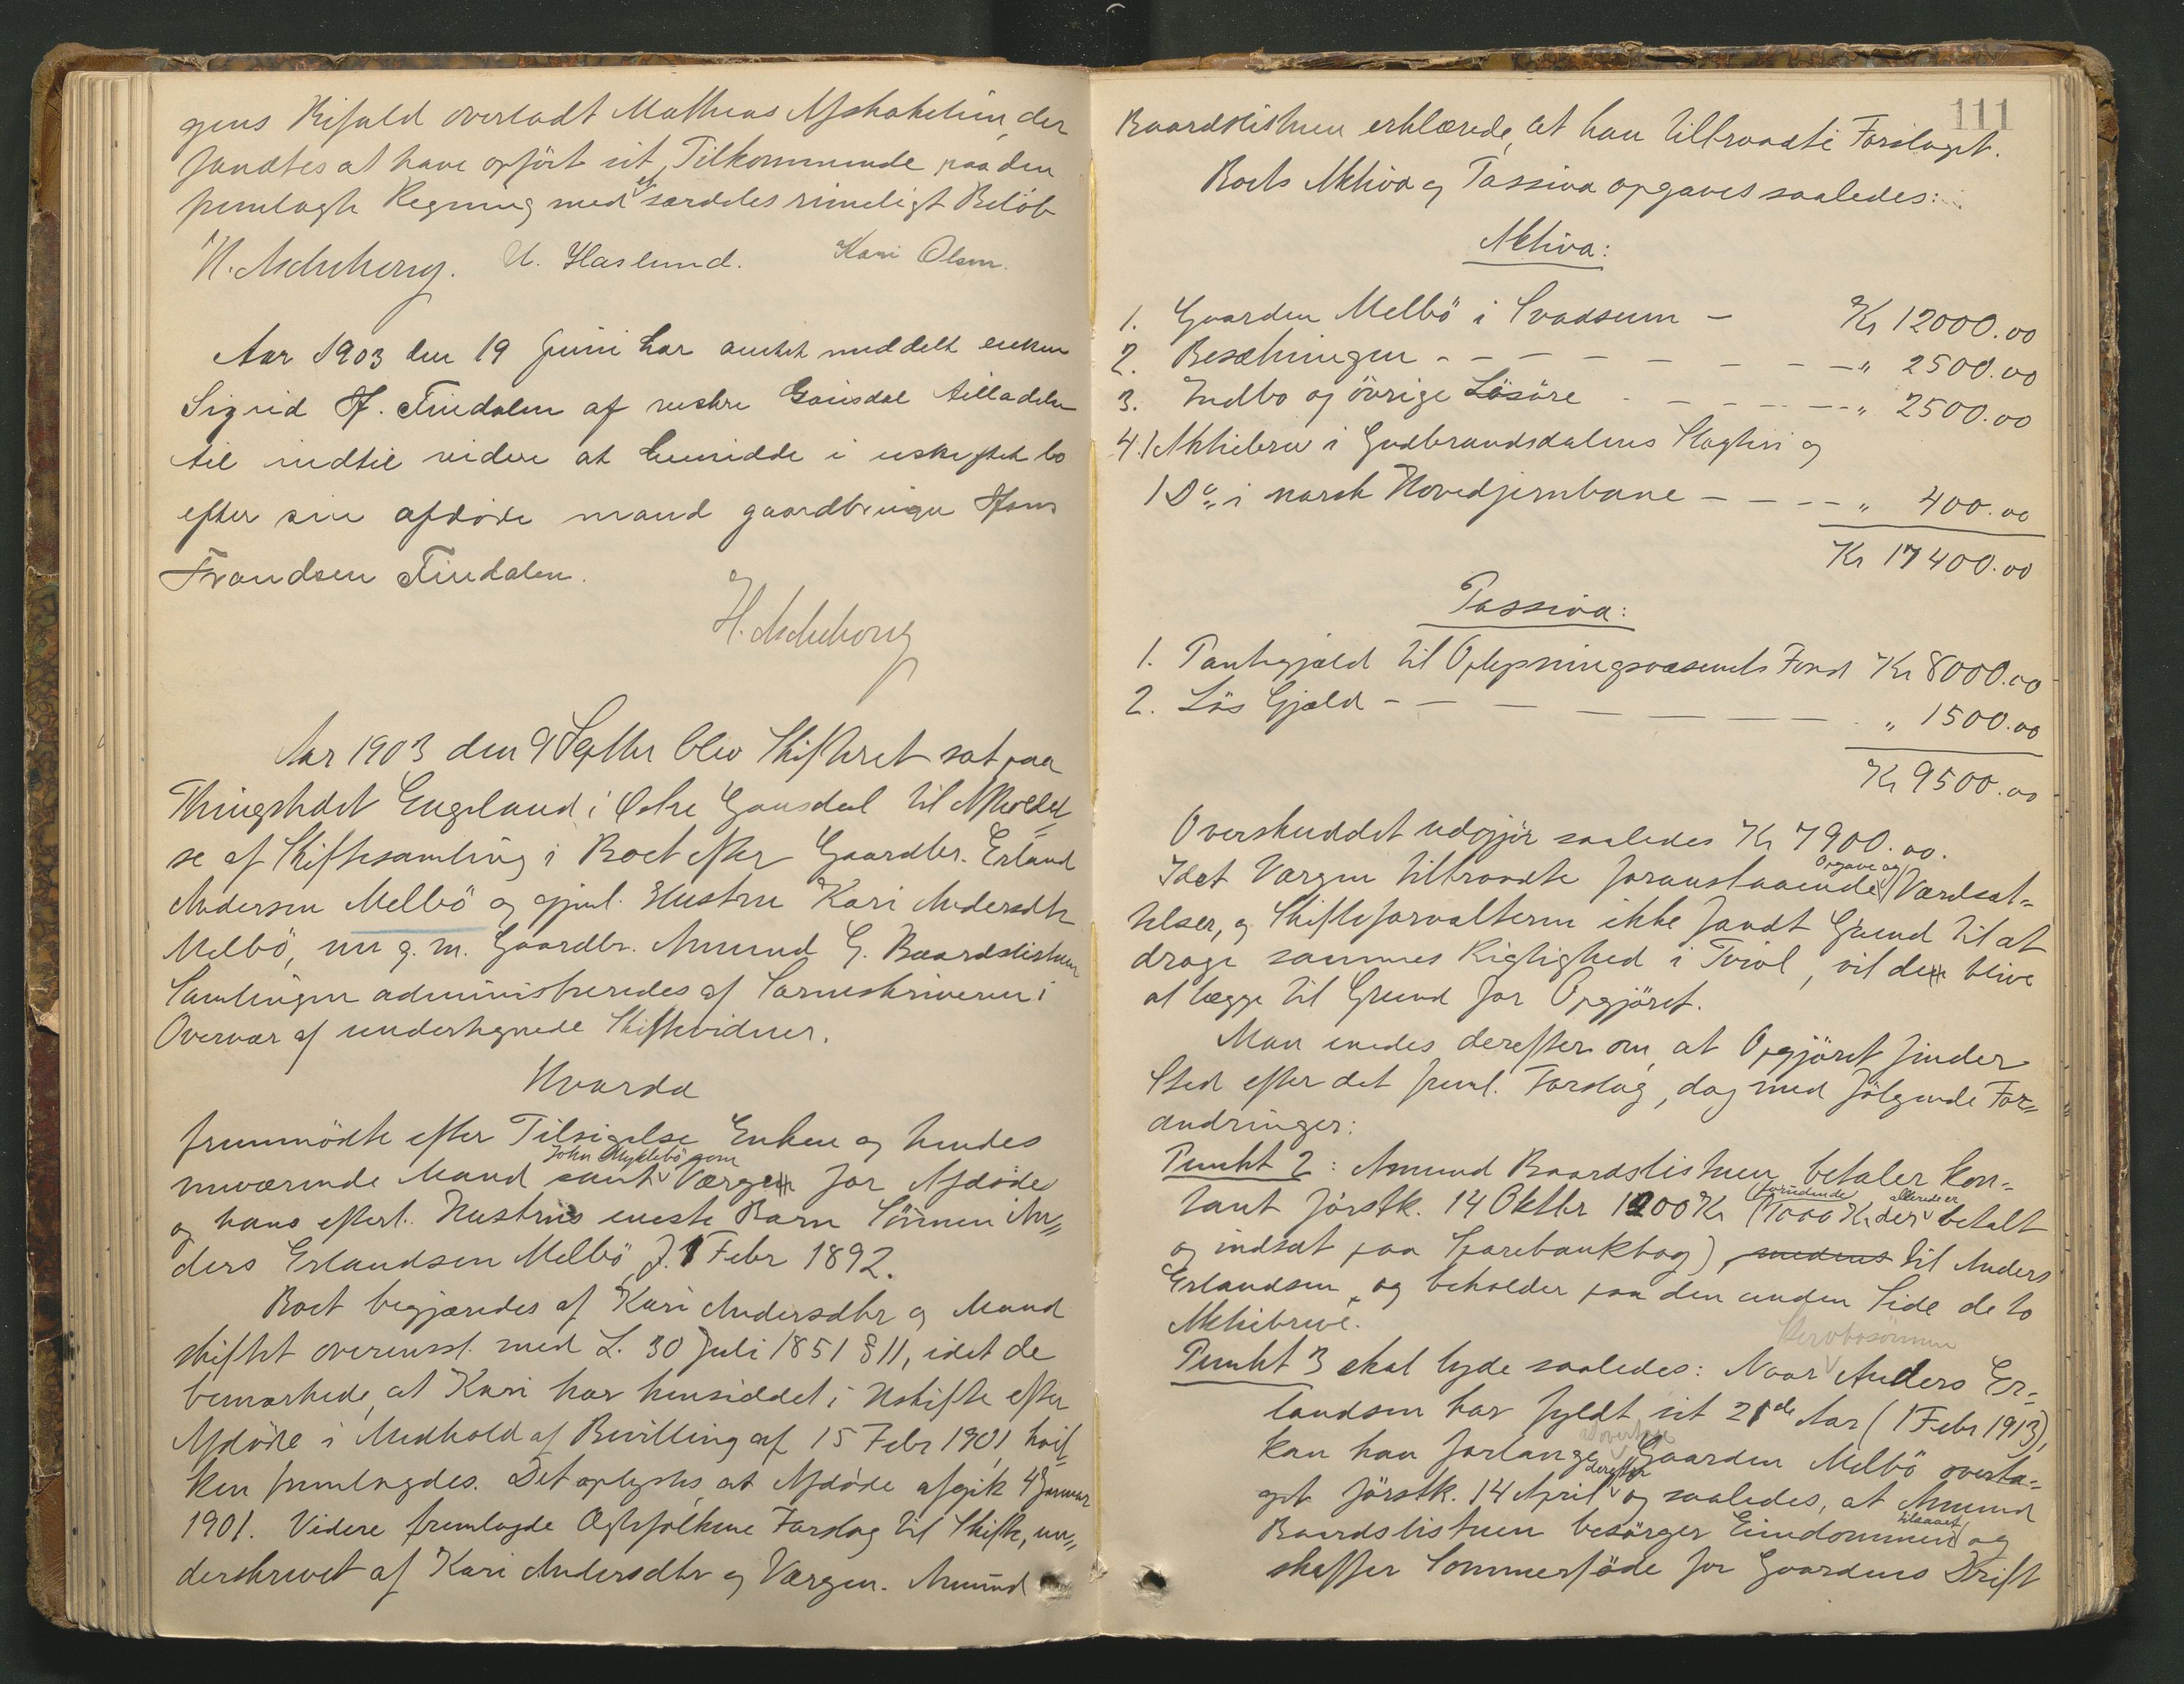 gens Bifald overladt Mathias Afskakelien, der
fandtes at have opført sit Tilkommende paa den
fremlagte Regning med et særdeles rimeligt Beløb
H. Aschehoug. U. Haslund. Kari Olsen.
Aar 1903 den 19 Juni har amtet meddelt enken
Sigrid H. Findalen af vestre Gausdal tilladelse
til indtil videre at hensidde i uskiftet bo
efter sin afdøde mand gaardbruger Hans
Frandsen Findalen.
H. Aschehoug
Aar 1903 den 9 Septbr blev Skifteret sat paa
Thingstedet Engeland i Østre Gausdal til Afholdel-
se af Skiftesamling i Boet efter Gaardbr. Erland
Andersen Melbö og gjenl. Hustru Kari Andersdtr
Melbö, nu g. m. Gaardbr. Amund G. Baardslistuen
Samlingen administreredes af Sorenskriveren i
Overvær af undertegnede Skiftevidner.
Hvorda
fremmödte efter Tilsigelse Enken og hendes
nuværende Mand samt John Myklebö som Værge for Afdøde
og hans efterl. Hustrus eneste Barn Sönnen An-
ders Erlandsen Melbö, f. 1 Febr 1892.
Boet begjæredes af Kari Andersdtr og Mand
skiftet overensst. med L. 30 Juli 1851 § 11, idet de
bemærkede, at Kari har hensiddet i Uskifte efter
Afdøde i Medhold af Bevilling af 15 Febr 1901, hvil-
ken fremlagdes. Det oplystes, at Afdøde afgik 4 Januar
1901. Videre fremlagde Ægtefolkene Forslag til Skifte, un-
derskrevet af Kari Andersdtr og Værgen. Amund
111
Baardslistuen erklærede, at han tiltraadte Forslaget.
Boets Aktiva og Passiva opgaves saaledes:
Aktiva:
1. Gaarden Melbö i Svadsum - Kr 12000.00
2. Besætningen - - - - - - - " 2500.00
3. Indbo og övrige Lösöre - - - - - " 2500.00
4. 1 Aktiebrev i Gudbrandsdalens Slagteri og
1 Do i norsk Hovedjernbane - - - - " 400.00
Kr 17400.00
Passiva:
1. Pantegjæld til Oplysningsvæsenets Fond Kr 8000.00
2. Lös Gjæld - - - - - - - " 1500.00
Kr 9500.00
Overskuddet udgjör saaledes Kr 7900.00.
Idet Værgen tiltraadte foranstaaende Opgave og Værdsæt-
telser, og Skifteforvalteren ikke fandt Grund til at
drage sammes Rigtighed i Tvivl, vil de blive
at lægge til Grund for Opgjöret.
Man enedes derefter om, at Opgjöret finder
Sted efter det freml. Forslag, dog med følgende For-
andringer:
Punkt 2: Amund Baardslistuen betaler kon-
tant förstk. 14 Oktbr 1200 Kr (foruden de 1000 Kr der allerede er betalt
og indsat paa Sparebankbog), medens til Anders
Erlandsen, og beholder paa den anden Side de to
Aktiebreve.
Punkt 3 skal lyde saaledes: Naar Stervbosönnen Anders Er-
landsen har fyldt sit 21de Aar (1 Febr 1913),
kan han forlange at overtage Gaarden Melbö overta-
get förstk. 14 April derefter og saaledes, at Amund
Baardslistuen besörger Eiendommen tilsaaet og
skaffer Sommerföde for Gaardens Drift